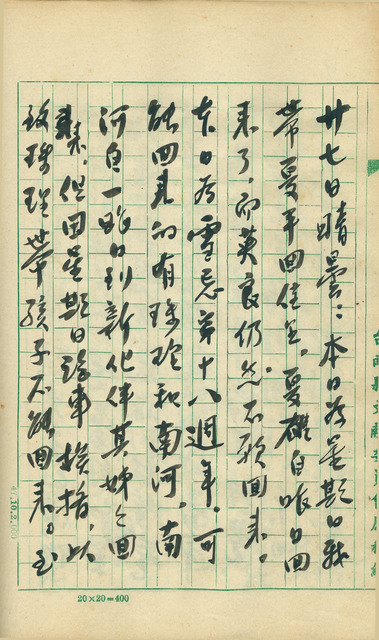 廿七日晴曇:本日為星期日我
帶夏平回佳里。夏雄自昨日回
來了,而英良仍然不願回來。
本日為雪忌第十八週年。可
能回來的有珠理和南河。南
河自一昨日到新化伴其姊之回
來。但因星期日路車擁擠,以
致珠理帶孩子不能回來。至
20×20=400